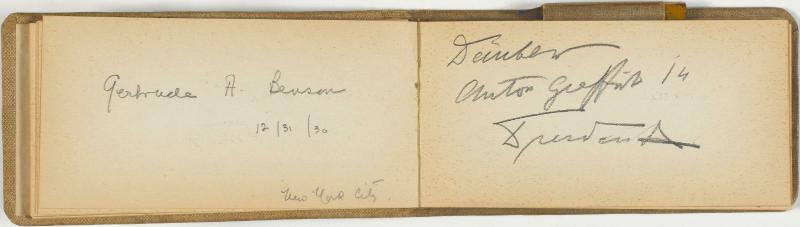 Gertrude A. Benson
12/31/30
New York City.
Däubler
Anton Graffstr 14
Dresden